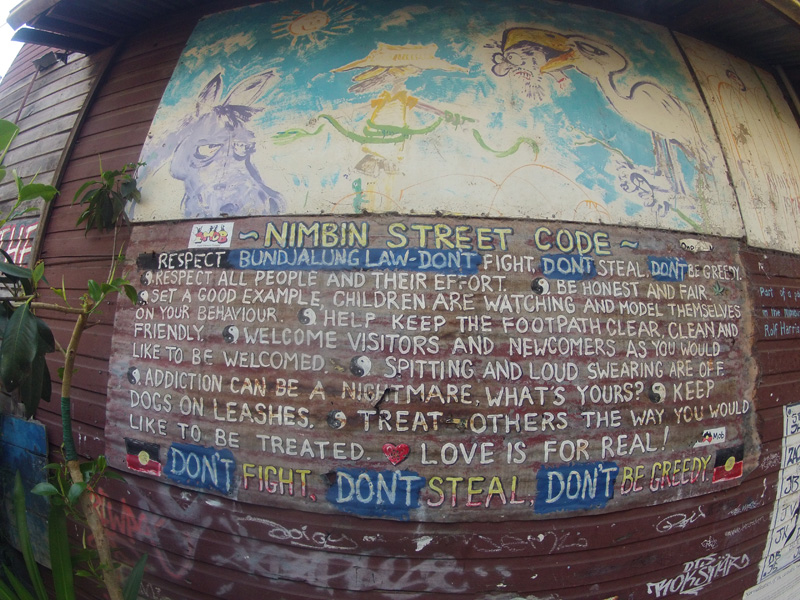 ~ NIMBIN STREET CODE ~
RESPECT BUNDJALUNG LAW-DONT FIGHT, DONT STEAL, DONT BE GREEDY.
RESPECT ALL PEOPLE AND THEIR EFFORT. BE HONEST AND FAIR.
SET A GOOD EXAMPLE, CHILDREN ARE WATCHING AND MODEL THEMSELVES
ON YOUR BEHAVIOUR. HELP KEEP THE FOOTPATH CLEAR, CLEAN AND
FRIENDLY. WELCOME VISITORS AND NEWCOMERS AS YOU WOULD
LIKE TO BE WELCOMED. SPITTING AND LOUD SWEARING ARE OFF.
ADDICTION CAN BE A NIGHTMARE, WHAT'S YOURS? KEEP
DOGS ON LEASHES. TREAT OTHERS THE WAY YOU WOULD
LIKE TO BE TREATED. LOVE IS FOR REAL!
Mob
DON'T FIGHT, DON'T STEAL, DON'T BE GREEDY.
Part of a
Rolf Harris